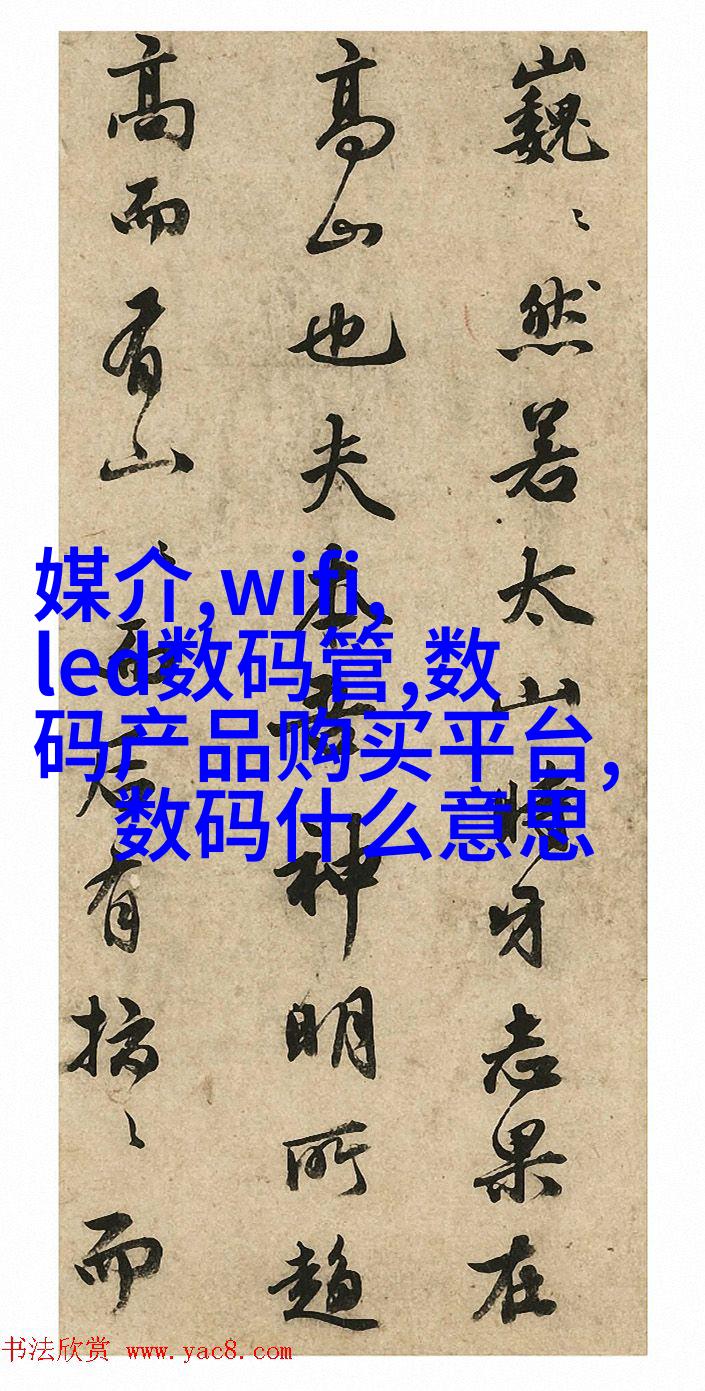 巍〻然若太山時牙志果在
高山也夫本神明所趨
高而有山〻有〻而
媒介,wifi,
led数码管,数
码产品购买平台,
数码什么意思
书法欣赏 www.yac8.com